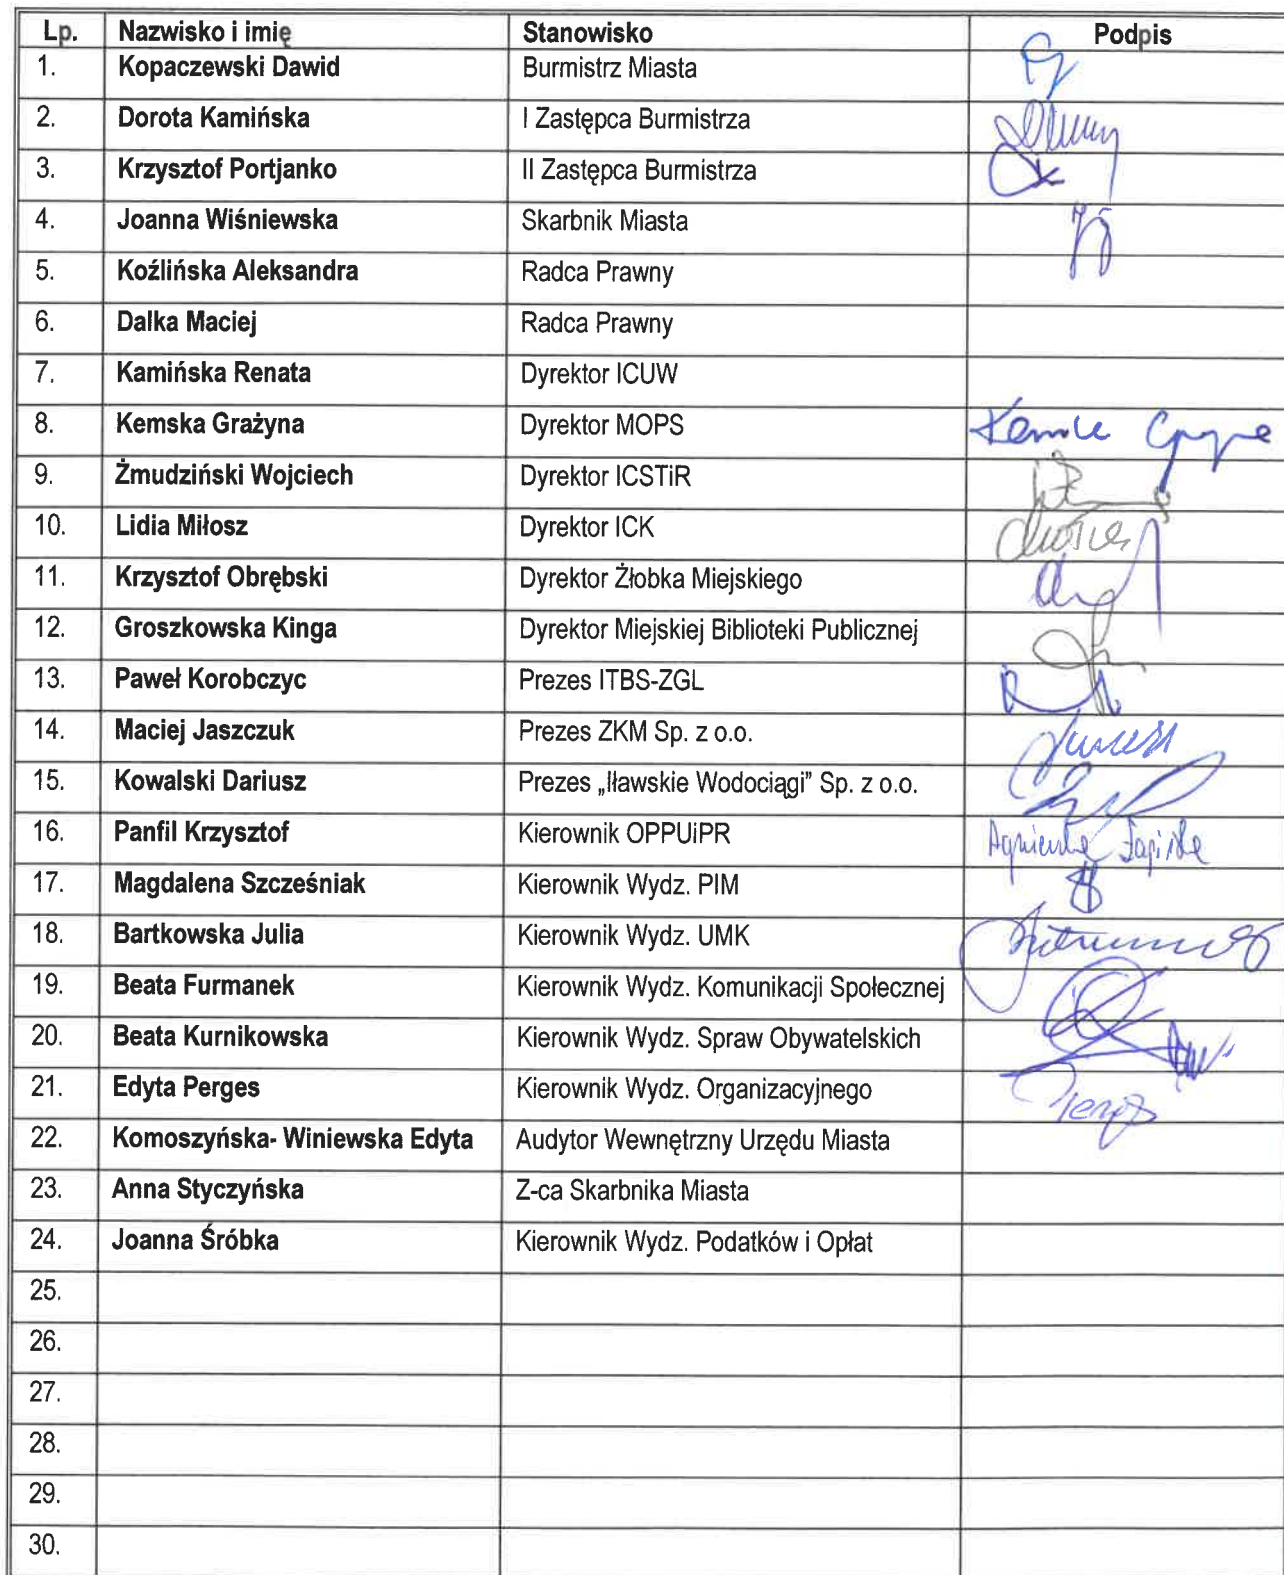 Lp. Nazwisko i imię Stanowisko Podpis
1. Kopaczewski Dawid Burmistrz Miasta
2. Dorota Kamińska I Zastępca Burmistrza
3. Krzysztof Portjanko II Zastępca Burmistrza
4. Joanna Wiśniewska Skarbnik Miasta
5. Koźlińska Aleksandra Radca Prawny
6. Dalka Maciej Radca Prawny
7. Kamińska Renata Dyrektor ICUW
8. Kemska Grażyna Dyrektor MOPS
9. Żmudziński Wojciech Dyrektor ICSTiR
10. Lidia Miłosz Dyrektor ICK
11. Krzysztof Obrębski Dyrektor Żłobka Miejskiego
12. Groszkowska Kinga Dyrektor Miejskiej Biblioteki Publicznej
13. Paweł Korobczyc Prezes ITBS-ZGL
14. Maciej Jaszczuk Prezes ZKM Sp. z o.o.
15. Kowalski Dariusz Prezes „Iławskie Wodociągi” Sp. z o.o.
16. Panfil Krzysztof Kierownik OPPUiPR
17. Magdalena Szcześniak Kierownik Wydz. PIM
18. Bartkowska Julia Kierownik Wydz. UMK
19. Beata Furmanek Kierownik Wydz. Komunikacji Społecznej
20. Beata Kurnikowska Kierownik Wydz. Spraw Obywatelskich
21. Edyta Perges Kierownik Wydz. Organizacyjnego
22. Komoszyńska- Winiewska Edyta Audytor Wewnętrzny Urzędu Miasta
23. Anna Styczyńska Z-ca Skarbnika Miasta
24. Joanna Śróbka Kierownik Wydz. Podatków i Opłat
25.
26.
27.
28.
29.
30.